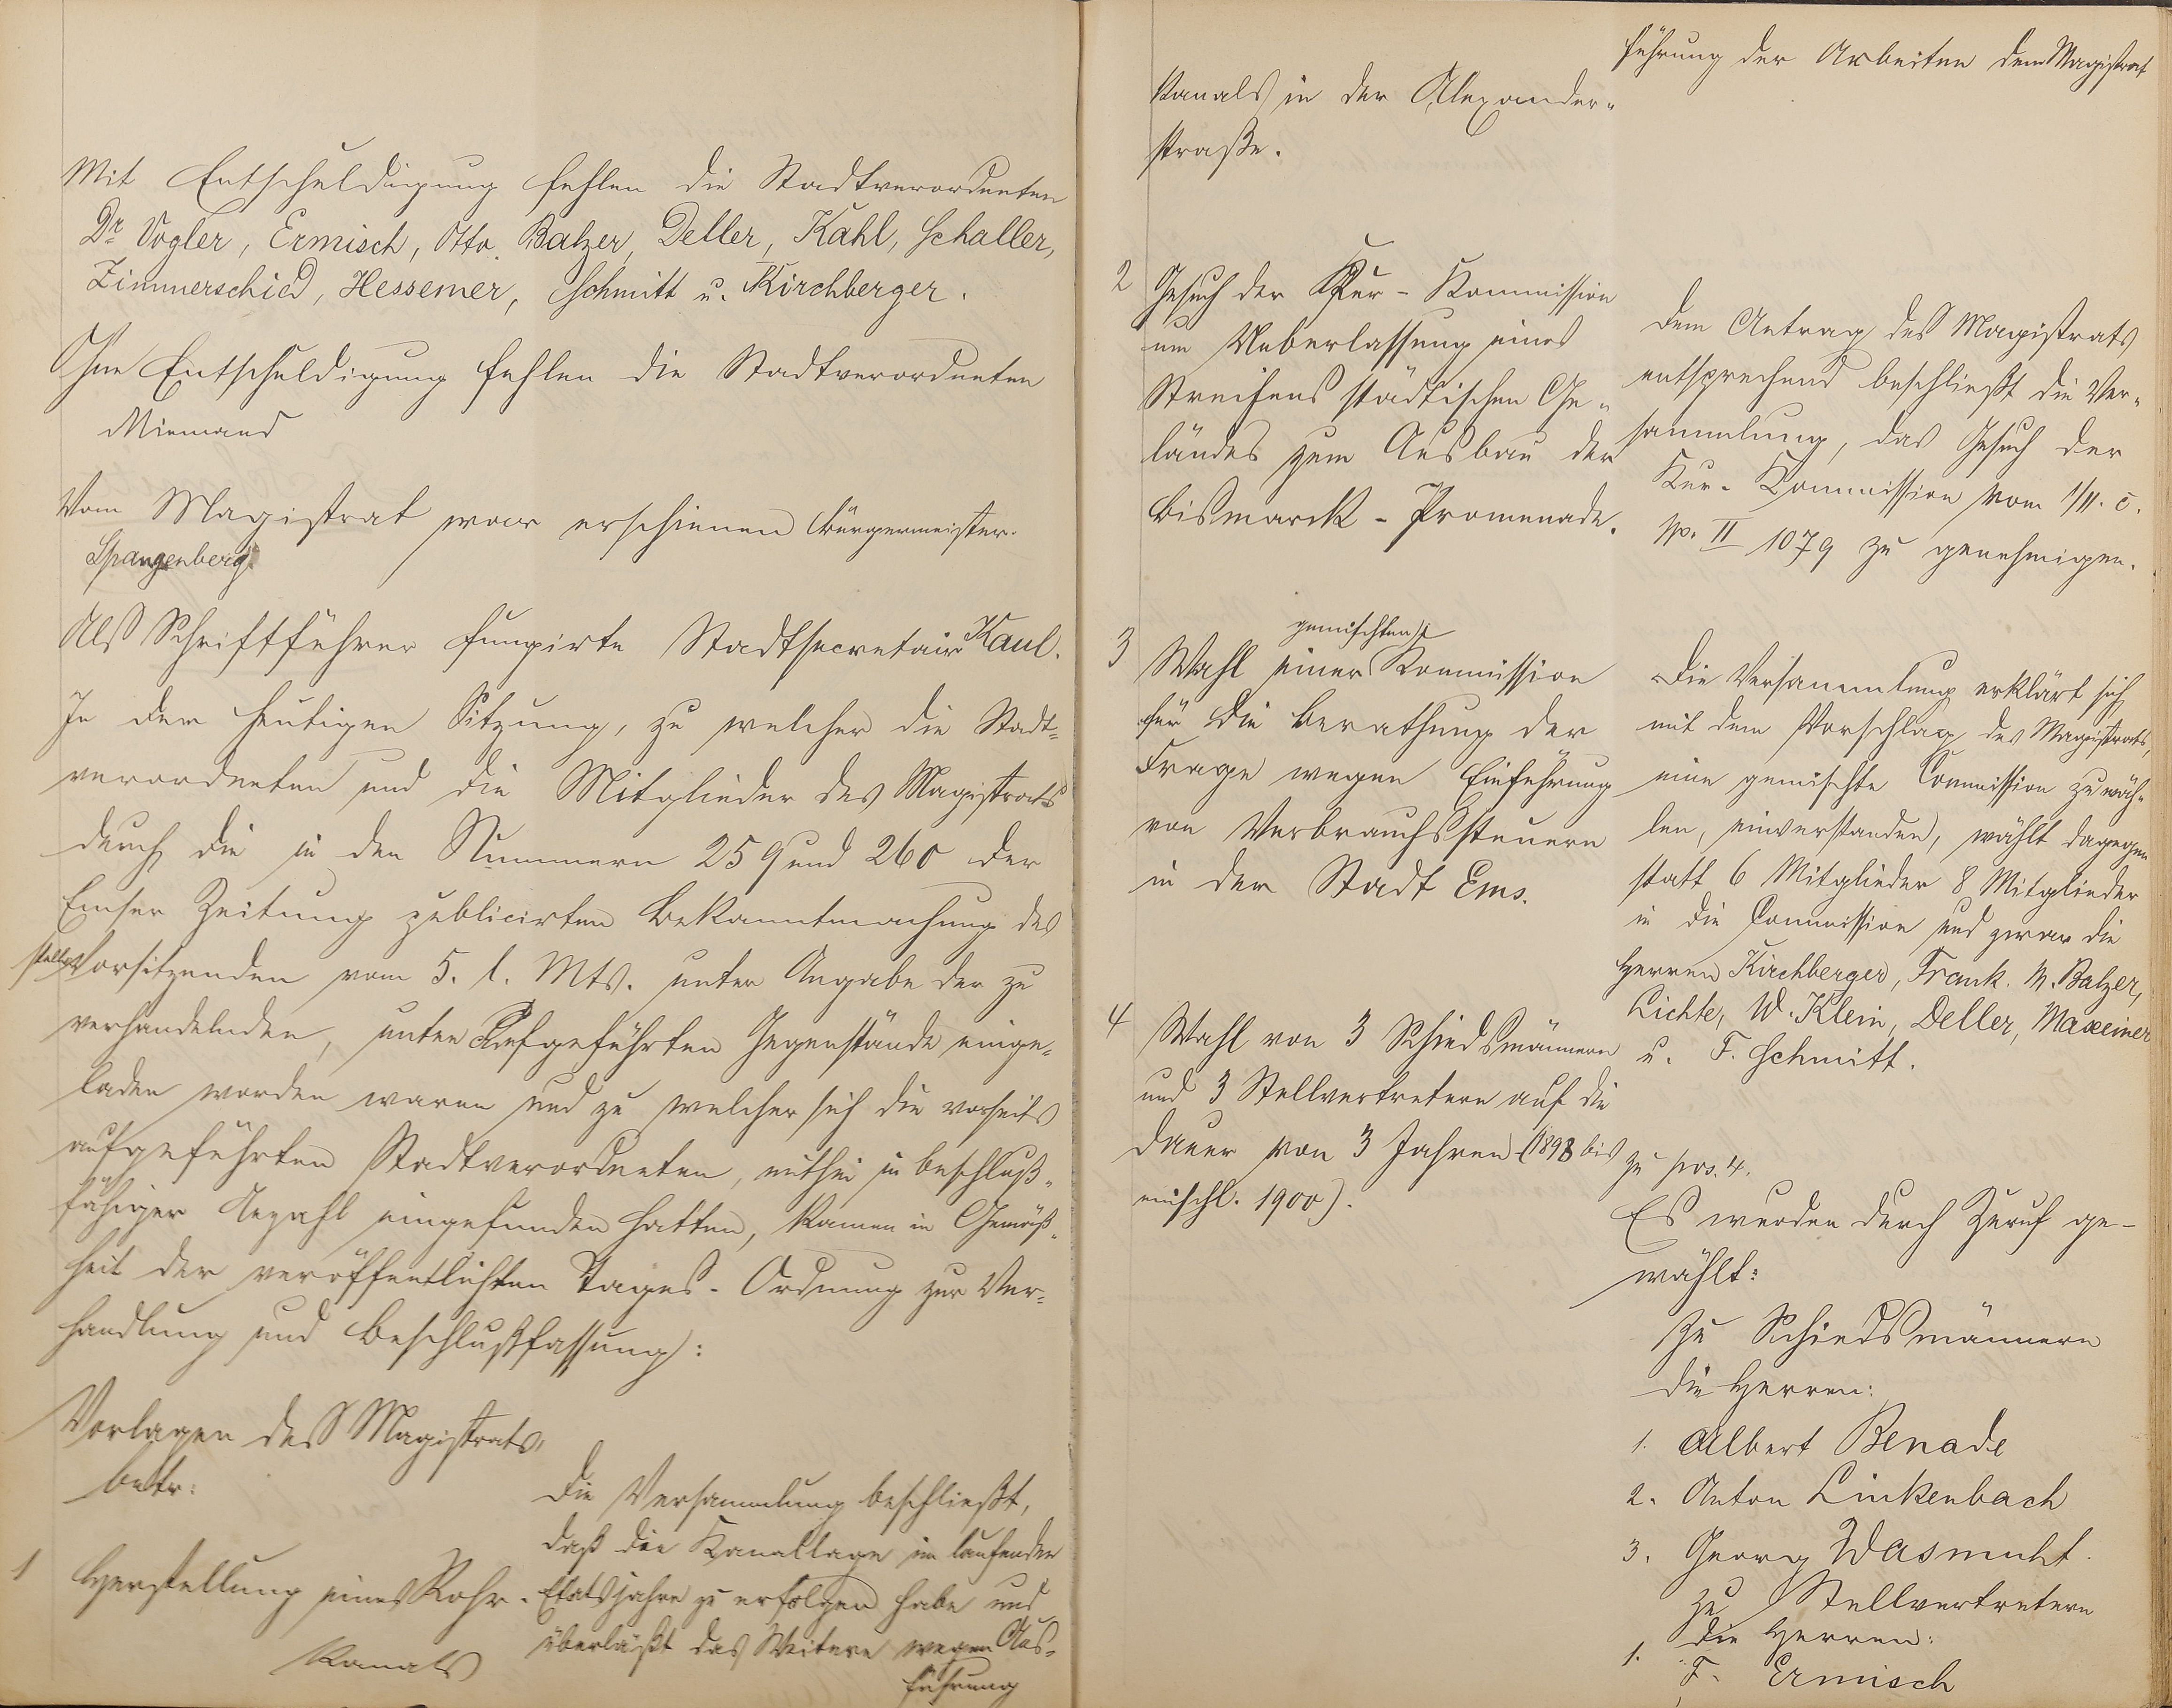 Mit Entschuldigung fehlen die Stadtverordneten
Dr. Vogler, Ermisch, Otto Balzer, Deller, Kahl, Schaller,
Zimmerschied, Hessemer, Schmitt u. Kirchberger.
Ohne Entschuldigung fehlen die Stadtverordneten
Niemand
Vom Magistrat war erschienen Bürgermeister
Spangenberg
Als Schriftführer fungirte Stadtsecretair Kaul.
In der heutigen Sitzung, zu welcher die Stadt-
verordneten und die Mitglieder des Magistrats
durch die in den Nummern 259 und 260 der
Emser Zeitung publicirten Bekanntmachung des
stellv. Vorsitzenden vom 5. l. Mts. unter Angabe der zu
verhandelnden, unten aufgeführten Gegenstände einge-
laden worden waren und zu welcher sich die vorseits
aufgeführten Stadtverordneten, mithin in beschluß-
fähiger Anzahl eingefunden hatten, kamen in Gemäß-
heit der veröffentlichten Tages-Ordnung zur Ver-
handlung und Beschlußfassung:
Vorlagen des Magistrats,
betr:
1 Herstellung eines Rohr-
Kanals
Die Versammlung beschließt,
daß die Kanallage im laufenden
Etatsjahre zu erfolgen habe und
überläßt das Weitere wegen Aus-
führung
Kanals in der Alexander-
straße.
führung der Arbeiten dem Magistrat
2 Gesuch der Kur-Kommission
um Ueberlassung eines
Streifens städtischen Ge-
ländes zum Ausbau der
Bismarck-Promenade.
Dem Antrag des Magistrats
entsprechend beschließt die Ver-
sammlung, das Gesuch der
Kur-Kommission vom 1/11. c.
sp. II 1079 zu genehmigen.
3 Wahl einer gemischten Kommission
für die Berathung der
Frage wegen Einführung
von Verbrauchssteuern
in der Stadt Ems.
Die Versammlung erklärt sich
mit dem Vorschlag des Magistrats,
eine gemischte Commission zu wäh-
len, einverstanden, wählt dagegen
statt 6 Mitglieder 8 Mitglieder
in die Commission und zwar die
Herren Kirchberger, Frank. M. Balzer,
Lichte, W. Klein, Deller, Maxeiner
u. F. Schmitt.
4 Wahl von 3 Schiedsmännern
und 3 Stellvertretern auf die
Dauer von 3 Jahren (1898 bis
einschl. 1900).
zu pos. 4.
Es wurden durch Zuruf ge-
wählt:
Zu Schiedsmännern
die Herren:
1. Albert Benade
2. Anton Linkenbach
3. Georg Wasmuht.
zu Stellvertretern
die Herren:
1. F. Ermisch